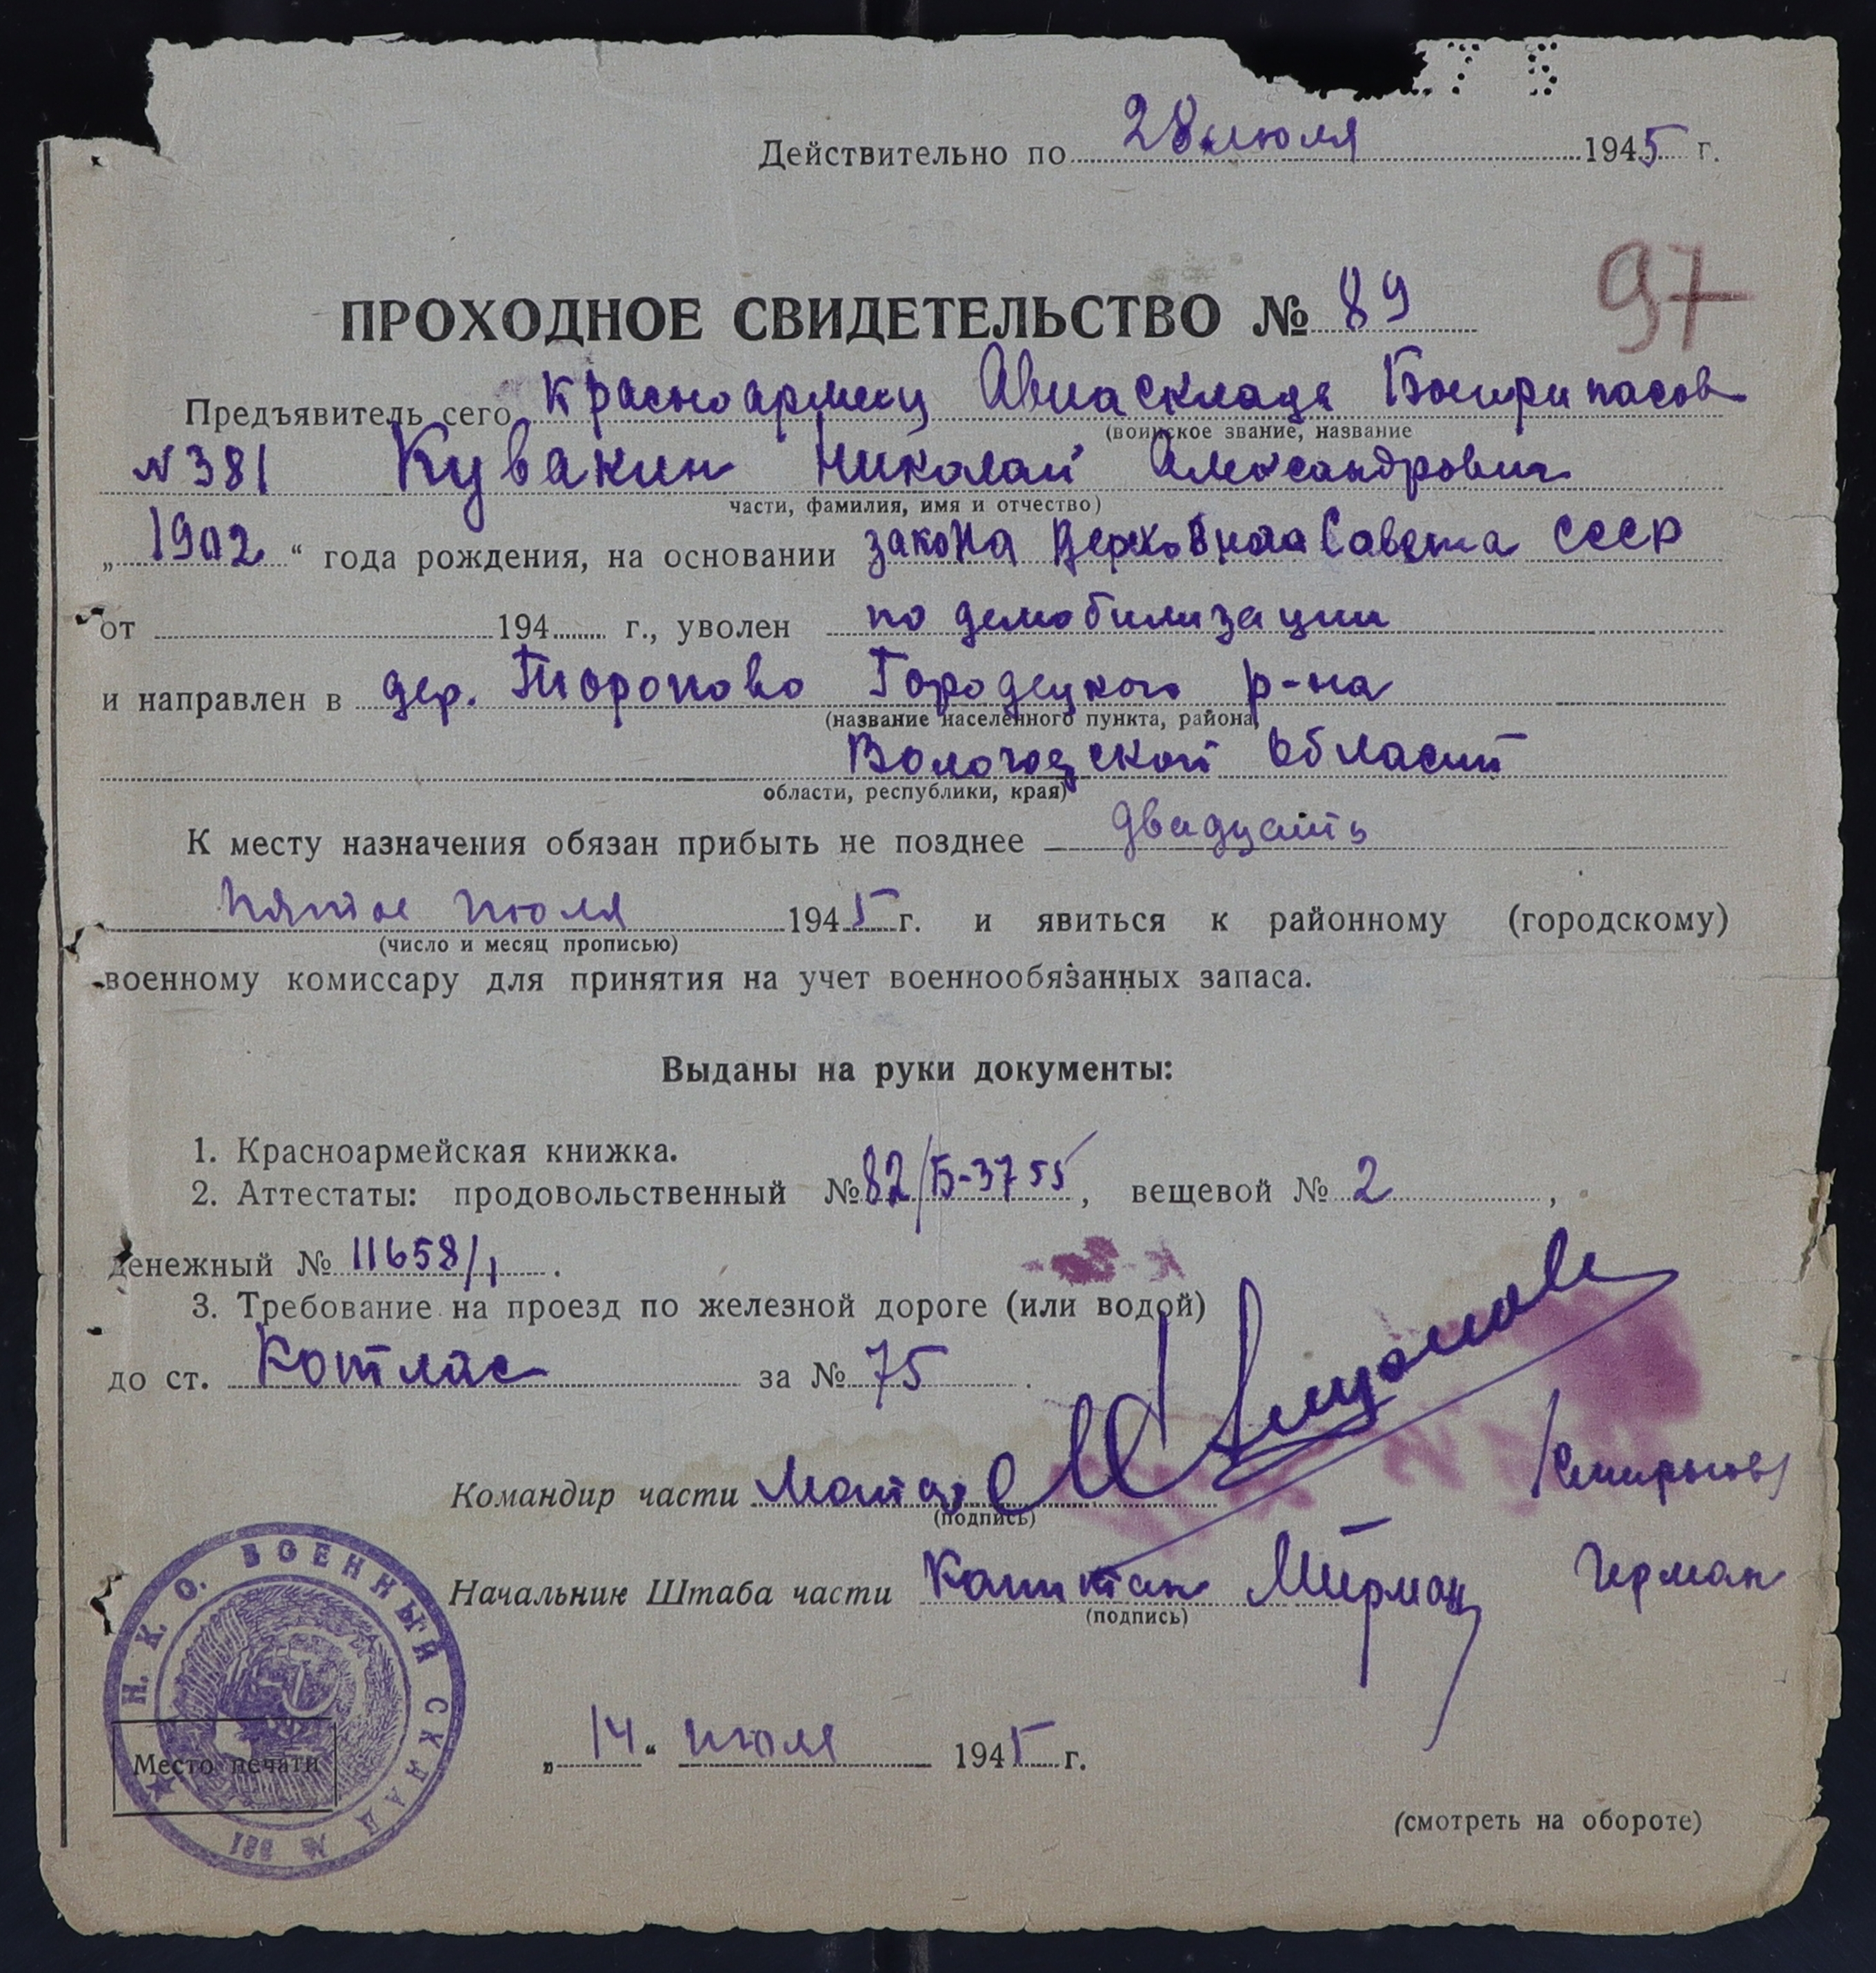 Действительно по 28 июля 1945 г.
ПРОХОДНОЕ СВИДЕТЕЛЬСТВО № 89
97
Предъявитель сего красноармеец Авиасклада Боеприпасов
(воинское звание, название
№381 Кувакин Николай Александрович
части, фамилия, имя и отчество)
„1902“ года рождения, на основании закона Верховного Совета СССР
от 194 г., уволен по демобилизации
и направлен в дер. Тюропово Городецкого р-на
(название населенного пункта, района,
Вологодской области
области, республики, края)
К месту назначения обязан прибыть не позднее двадцать
пятое июля 1945 г. и явиться к районному (городскому)
(число и месяц прописью)
военному комиссару для принятия на учет военнообязанных запаса.
Выданы на руки документы:
1. Красноармейская книжка.
2. Аттестаты: продовольственный № 82/Б-3755, вещевой № 2,
денежный № 11658/1.
3. Требование на проезд по железной дороге (или водой)
до ст. Котлас за № 75.
Командир части Майор /Смирнов/
(подпись)
Начальник Штаба части Капитан Герман
(подпись)
Н. К. О. ВОЕННЫЙ СКЛАД № 381
Место печати
„14“ июля 1945 г.
(смотреть на обороте)